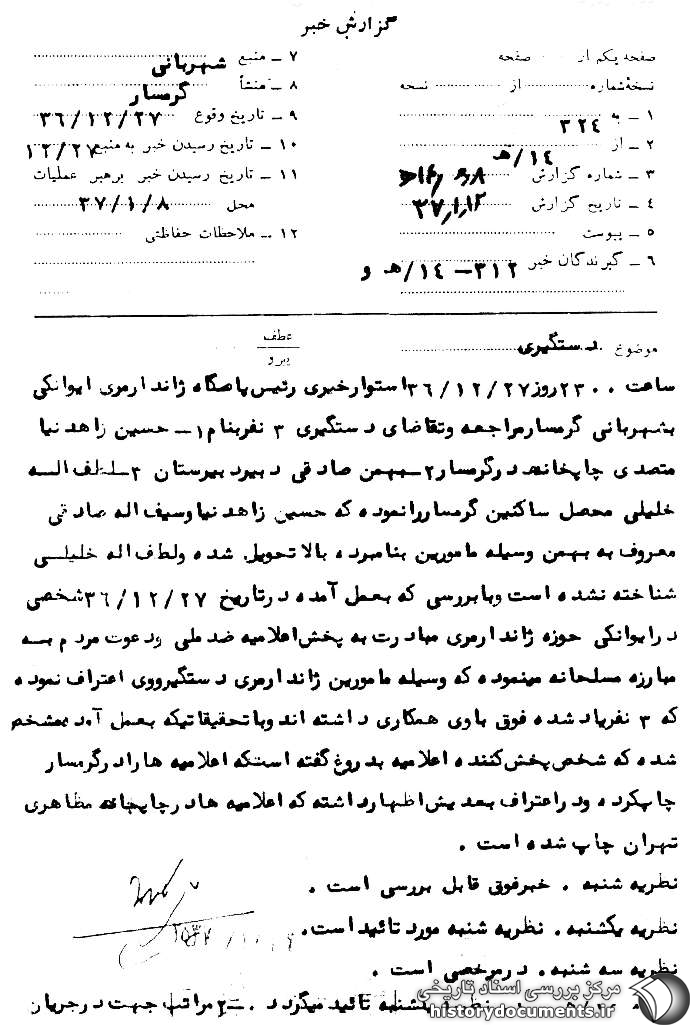 گزارش خبر
صفحه یکم از صفحه
نسخهٔ شماره از نسخه
۱ ـ به ۳۲۴
۲ ـ از ۱۴/هـ
۳ ـ شماره گزارش
۴ ـ تاریخ گزارش ۳۷٫۱٫۱۲
۵ ـ پیوست
۶ ـ گیرندگان خبر ۳۱۲ـ ۱۴/هـ و
۷ ـ منبع شهربانی
۸ ـ منشأ گرمسار
۹ ـ تاریخ وقوع ۳۶/۱۲/۲۷
۱۰ ـ تاریخ رسیدن خبر به منبع ۱۲/۲۷
۱۱ ـ تاریخ رسیدن خبر برهبر عملیات
محل ۳۷/۱/۸
۱۲ ـ ملاحظات حفاظتی
موضوع دستگیری
عطف
پیرو
ساعت ۲۳۰۰ روز ۳۶/۱۲/۲۷ استوارخبری رئیس پاسگاه ژاندارمری ایوانکی
بشهربانی گرمسار مراجعه وتقاضای دستگیری ۳ نفربنام ۱ـ حسین زاهدنیا
متصدی چاپخانه درگرمسار ۲ـ بهمن صادقی دبیردبیرستان ۳ـ لطف الله
خلیلی محصل ساکنین گرمساررانموده که حسین زاهدنیاوسیف اله صادقی
معروف به بهمن وسیله مامورین بنامبرده بالاتحویل شده ولطف اله خلیلی
شناخته نشده است وبابررسی که بعمل آمده درتاریخ ۳۶/۱۲/۲۷ شخصی
درایوانکی حوزه ژاندارمری مبادرت به پخش اعلامیه ضدملی ودعوت مردم به
مبارزه مسلحانه مینموده که وسیله مامورین ژاندارمری دستگیرووی اعتراف نموده
که ۳ نفریادشده فوق باوی همکاری داشته اندوباتحقیقاتیکه بعمل آمده مشخص
شده که شخص پخش کننده اعلامیه بدروغ گفته استکه اعلامیه هارادرگرمسار
چاپکرده ودراعتراف بعدیش اظهارداشته که اعلامیه هادرچاپخانه مظاهری
تهران چاپ شده است .
نظریه شنبه . خبرفوق قابل بررسی است .
نظریه یکشنبه . نظریه شنبه مورد تائید است .
نظریه سه شنبه . درمرخصی است .
نظریه یکشنبه تائید میگردد . ۲ـ مراتب جهت درجریان
مرکز بررسی اسناد تاریخی
historydocuments.ir